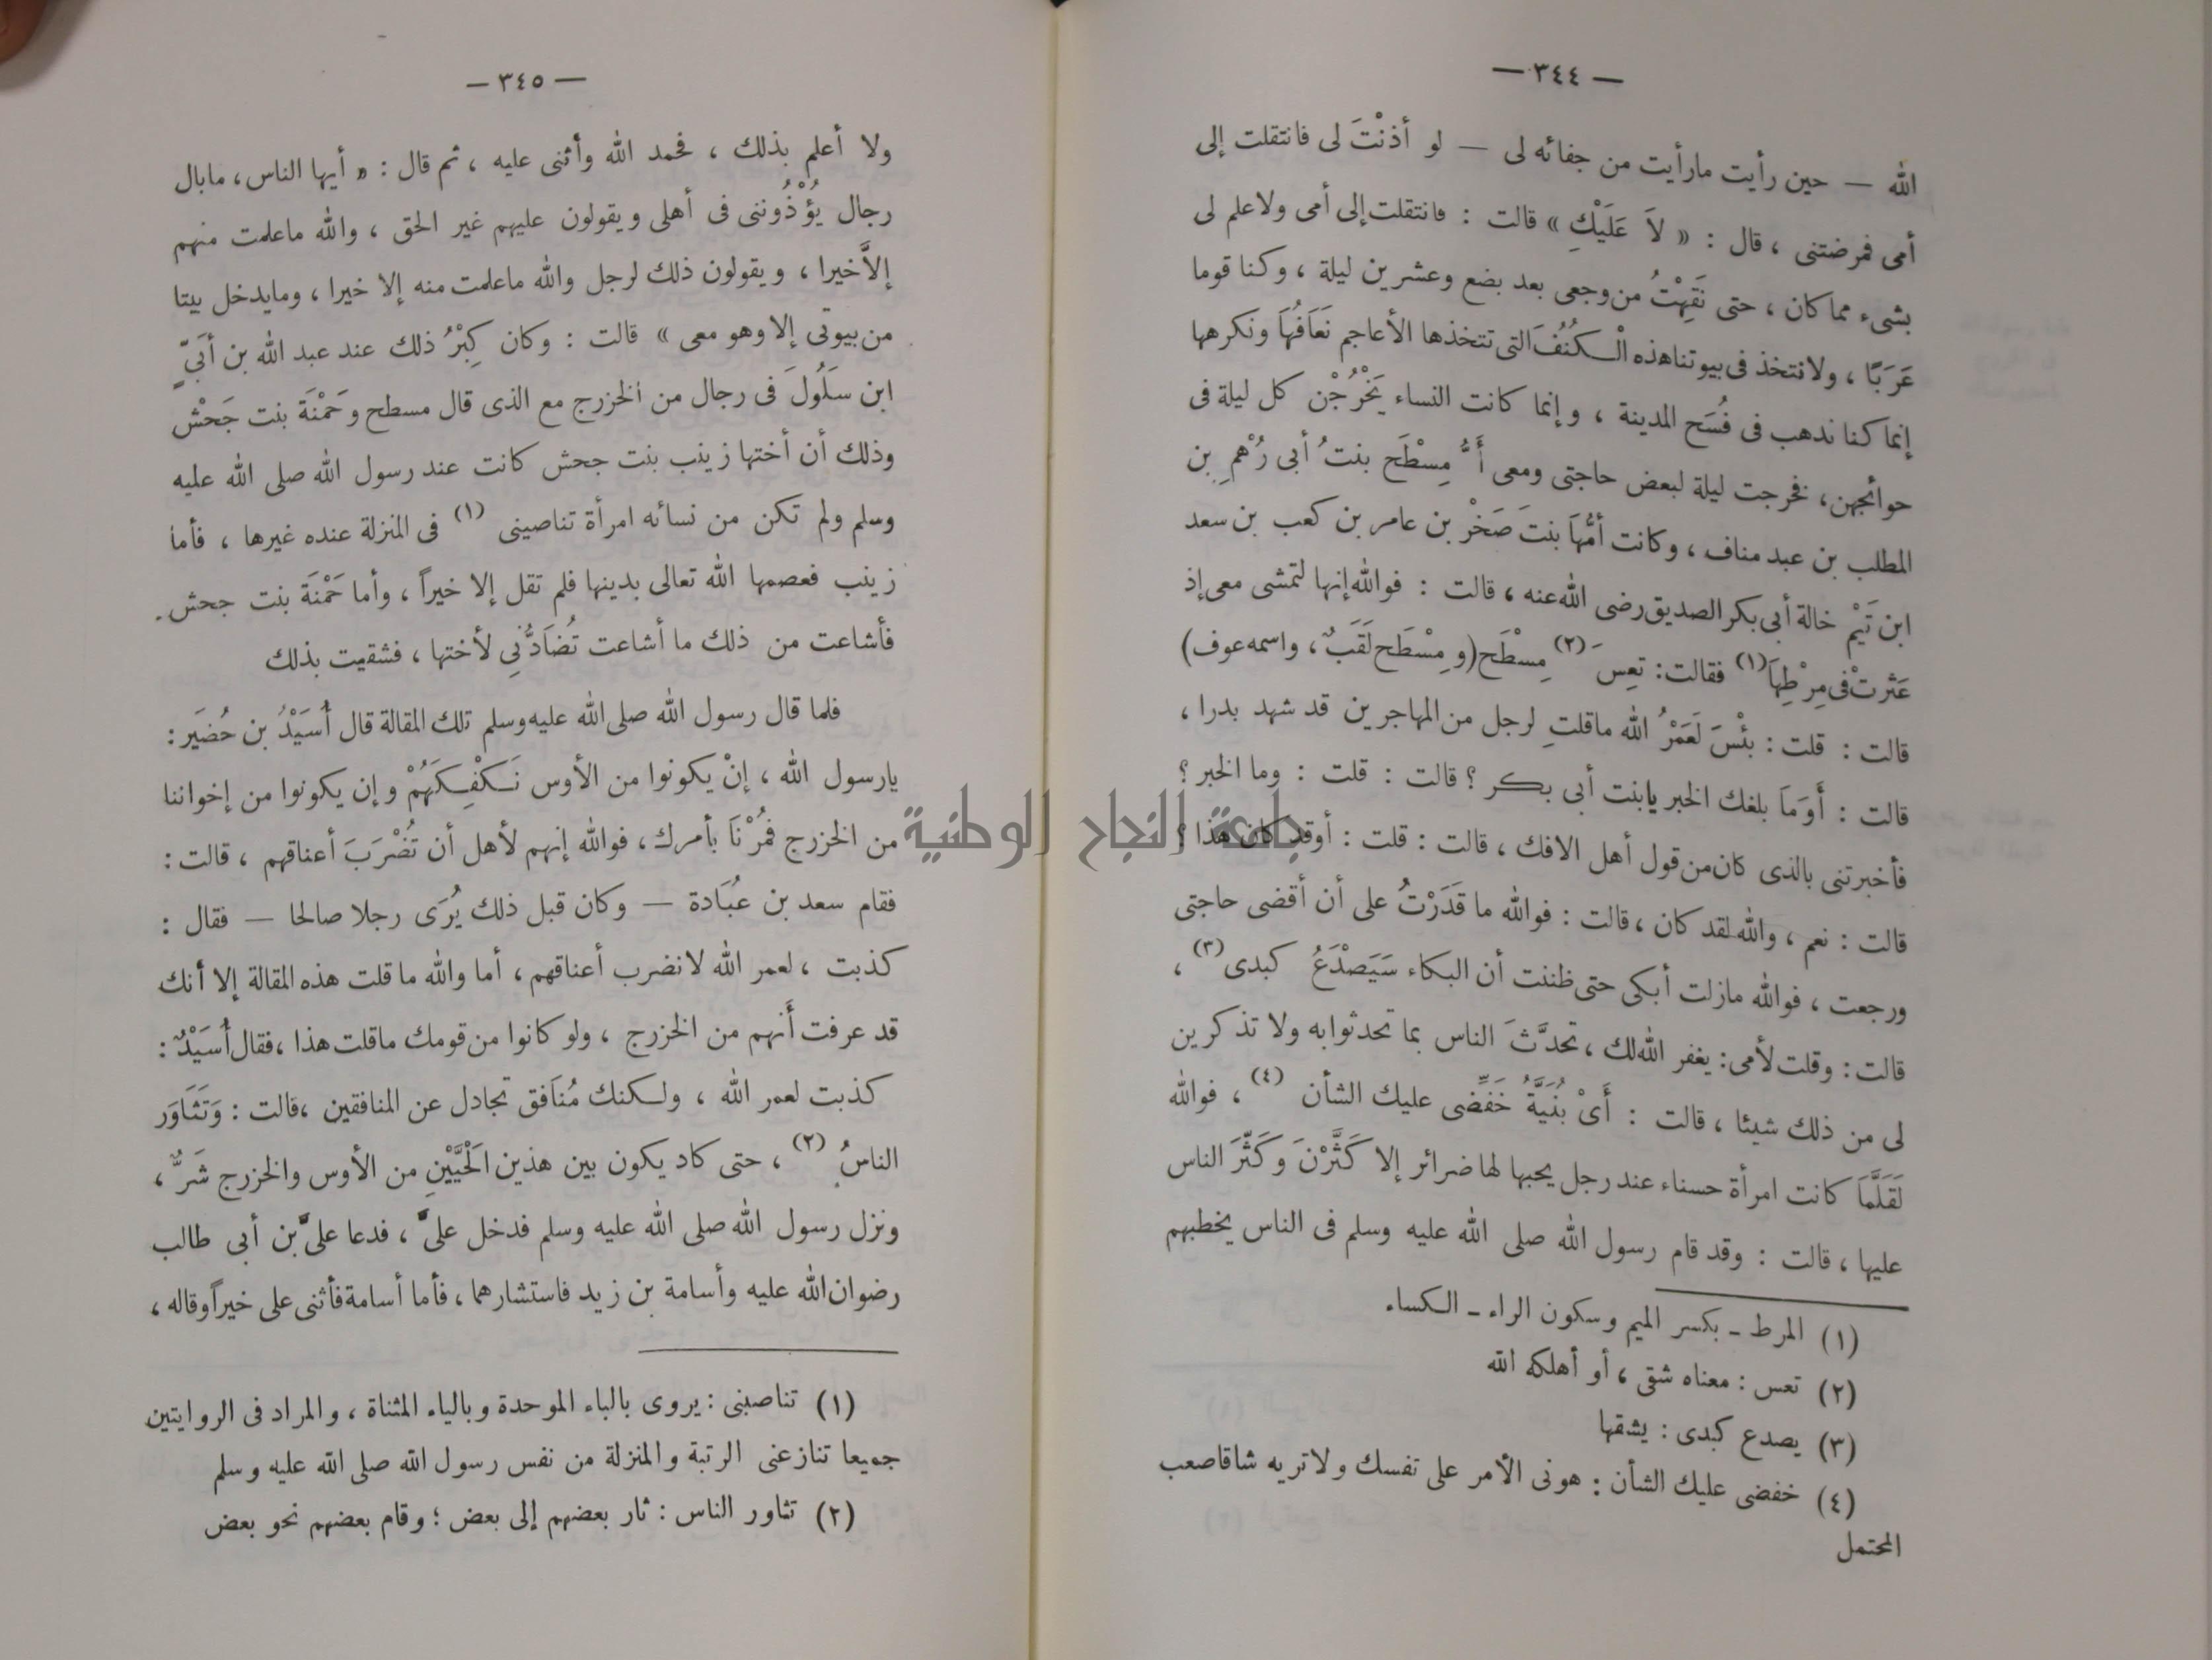 — ٣٤٤ —
الله — حين رأيت مارأيت من جفائه لى — لو أذنْتَ لى فانتقلت إلى
أمى فمرضتنى ، قال : « لاَ عَلَيْكِ » قالت : فانتقلت إلى أمى ولا علم لى
بشىء مما كان ، حتى نَقِهْتُ من وجعى بعد بضع وعشرين ليلة ، وكنا قوما
عَرَبًا ، ولا نتخذ فى بيوتنا هذه الْكُنُفَ التى تتخذها الأعاجم نَعَافُهَا ونكرهها
إنما كنا نذهب فى فُسَح المدينة ، وإنما كانت النساء يَخْرُجْن كل ليلة فى
حوائجهن، فخرجت ليلة لبعض حاجتى ومعى أُمُّ مِسْطَح بنتُ أبى رُهْمِ بن
المطلب بن عبد مناف ، وكانت أمُّهَا بنتَ صَخْر بن عامر بن كعب بن سعد
ابن تَيْم خالة أبى بكر الصديق رضى الله عنه ، قالت : فوالله إنها لتمشى معى إذ
عَثرتْ فى مِرْطِهَا (١) فقالت: تعِسَ (٢) مِسْطَح (و مِسْطَح لَقَبٌ ، واسمه عوف)
قالت : قلت : بئْسَ لَعَمْرُ الله ماقلتِ لرجل من المهاجرين قد شهد بدرا ،
قالت : أَوَمَا بلغك الخبر يابنت أبى بكر ؟ قالت : قلت : وما الخبر ؟
فأخبرتنى بالذى كان من قول أهل الافك ، قالت : قلت : أوقد كان هذا ؟
قالت : نعم ، والله لقد كان ، قالت : فوالله ما قَدَرْتُ على أن أقضى حاجتى
ورجعت ، فوالله مازلت أبكى حتى ظننت أن البكاء سَيَصْدَعُ كبدى (٣) ،
قالت : وقلت لأمى : يغفر الله لك ، تحدَّثَ الناس بما تحدثوا به ولا تذكرين
لى من ذلك شيئا ، قالت : أَىْ بُنَيَّةُ خَفِّضى عليك الشأن (٤) ، فوالله
لَقَلَّمَا كانت امرأة حسناء عند رجل يحبها لها ضرائر إلا كَثَّرْنَ وكَثَّرَ الناس
عليها ، قالت : وقد قام رسول الله صلى الله عليه وسلم فى الناس يخطبهم
(١) المرط ـ بكسر الميم وسكون الراء ـ الكساء
(٢) تعس : معناه شقى ، أو أهلكه الله
(٣) يصدع كبدى : يشقها
(٤) خفضى عليك الشأن : هونى الأمر على نفسك ولا تريه شاقا صعب
المحتمل
— ٣٤٥ —
ولا أعلم بذلك ، فحمد الله وأثنى عليه ، ثم قال : « أيها الناس ، مابال
رجال يُؤْذُوننى فى أهلى ويقولون عليهم غير الحق ، والله ماعلمت منهم
إلاَّ خيرا ، ويقولون ذلك لرجل والله ماعلمت منه إلا خيرا ، ومايدخل بيتا
من بيوتى إلا وهو معى » قالت : وكان كِبْرُ ذلك عند عبد الله بن أبَىٍّ
ابن سَلُولَ فى رجال من الخزرج مع الذى قال مسطح وحَمْنَة بنت جَحْش
وذلك أن أختها زينب بنت جحش كانت عند رسول الله صلى الله عليه
وسلم ولم تكن من نسائه امرأة تناصينى (١) فى المنزلة عنده غيرها ، فأما
زينب فعصمها الله تعالى بدينها فلم تقل إلا خيراً ، وأما حَمْنَة بنت جحش
فأشاعت من ذلك ما أشاعت تُضَادُّنِى لأختها ، فشقيت بذلك
فلما قال رسول الله صلى الله عليه وسلم تلك المقالة قال أُسَيْدُ بن حُضَير :
يارسول الله ، إنْ يكونوا من الأوس نَكْفِكَهُمْ وإن يكونوا من إخواننا
من الخزرج فمُرْنَا بأمرك ، فوالله إنهم لأهل أن تُضْرَبَ أعناقهم ، قالت :
جامعة النجاح الوطنية
فقام سعد بن عُبَادة — وكان قبل ذلك يُرَى رجلا صالحا — فقال :
كذبت ، لعمر الله لا نضرب أعناقهم ، أما والله ما قلت هذه المقالة إلا أنك
قد عرفت أَنهم من الخزرج ، ولو كانوا من قومك ماقلت هذا ، فقال أُسَيْدٌ :
كذبت لعمر الله ، ولكنك مُنَافق تجادل عن المنافقين ، قالت : وَتَثَاوَر
الناسُ (٢) ، حتى كاد يكون بين هذين الْحَيَّيْنِ من الأوس والخزرج شَرٌّ ،
ونزل رسول الله صلى الله عليه وسلم فدخل علىَّ ، فدعا علىَّ بن أبى طالب
رضوان الله عليه وأسامة بن زيد فاستشارهما ، فأما أسامة فأثنى على خيراً وقاله ،
(١) تناصبنى : يروى بالباء الموحدة وبالياء المثناة ، والمراد فى الروايتين
جميعا تنازعنى الرتبة والمنزلة من نفس رسول الله صلى الله عليه وسلم
(٢) تثاور الناس : ثار بعضهم إلى بعض ؛ وقام بعضهم نحو بعض